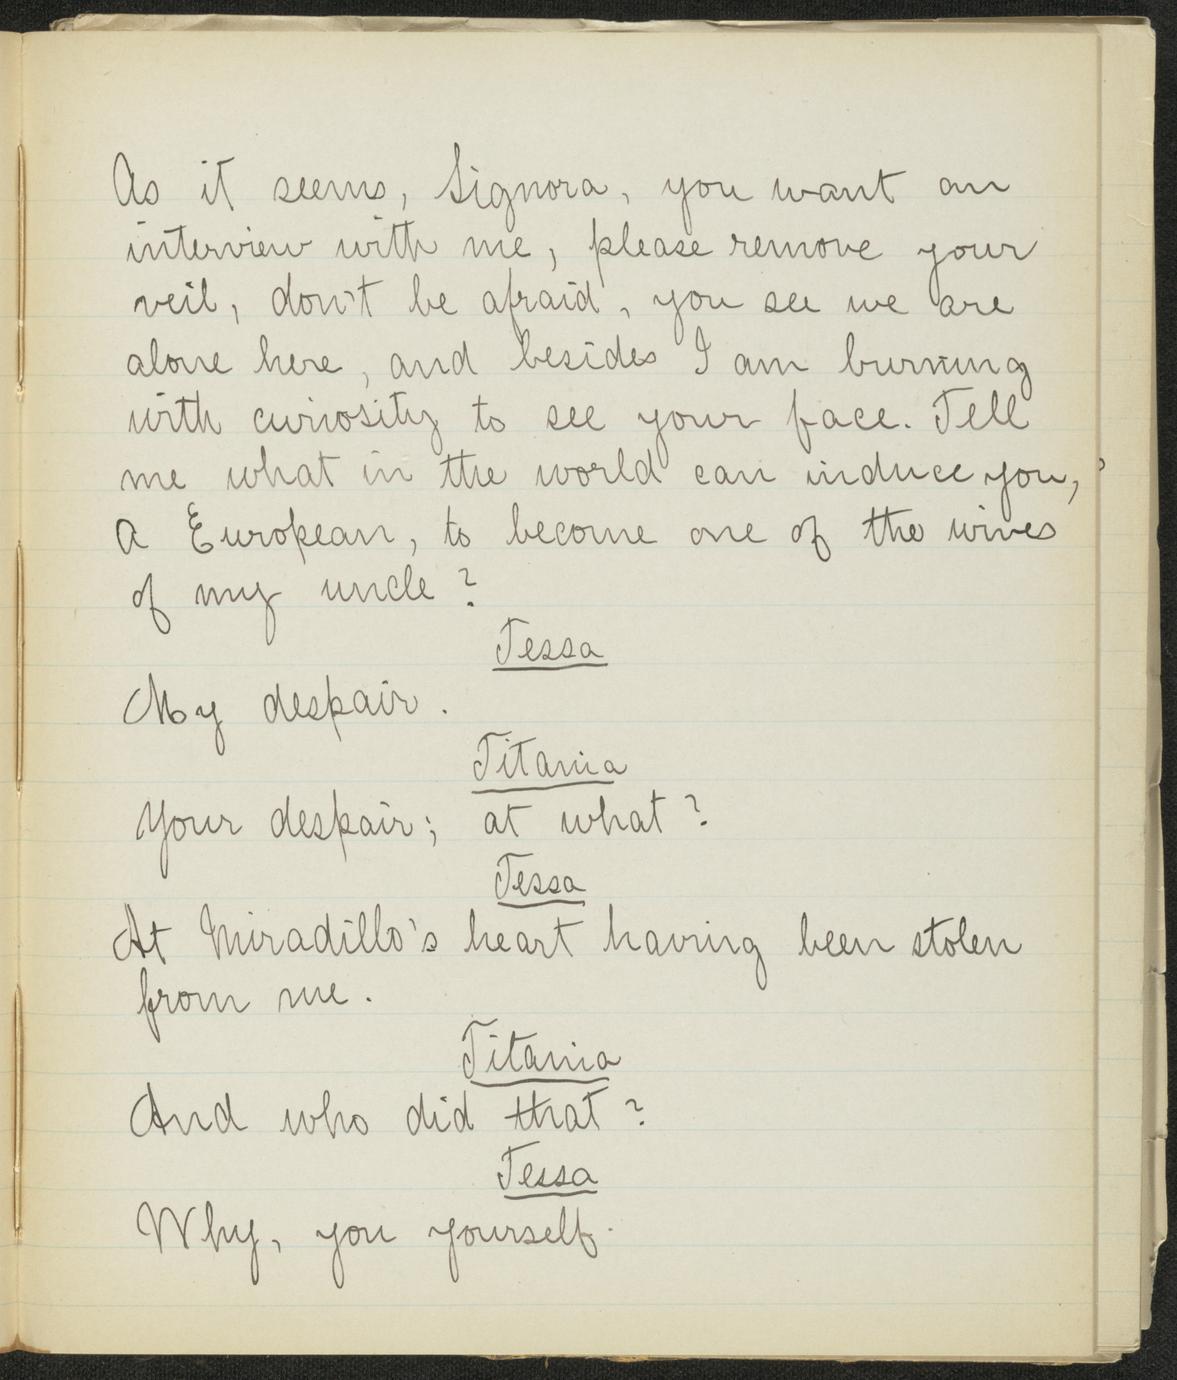 As it seems, Signora, you want an
interview with me, please remove your
veil, don't be afraid, you see we are
alone here, and besides I am burning
with curiosity to see your face. Tell
me what in the world can induce you,
a European, to become one of the wives
of my uncle?
Tessa
My despair.
Titania
Your despair; at what?
Tessa
At Miradillo's heart having been stolen
from me.
Titania
And who did that?
Tessa
Why, you yourself.